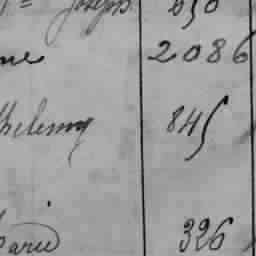 Joseph 650
ne 2086
thelemy 845
Marie 326